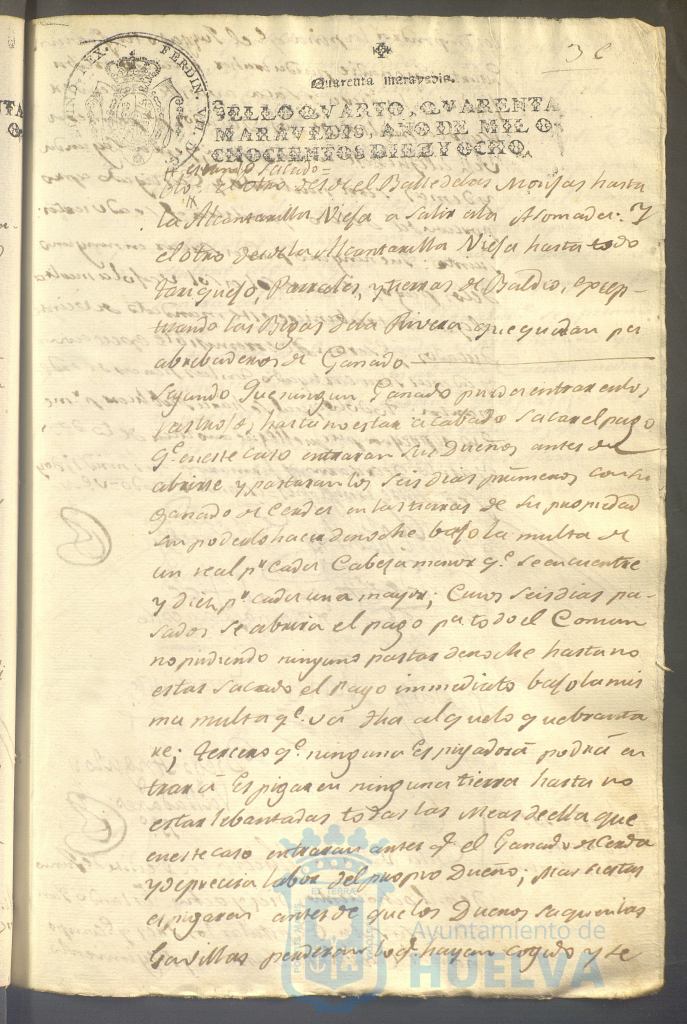 36
HIND. REX. FERDIN. VII. D.
Quarenta maravedis.
SELLO QVARTO, QVARENTA
MARAVEDIS, AÑO DE MIL O-
CHOCIENTOS DIEZ Y OCHO.
Salado =
desde el Balle delas Monjas hasta
la Alcantarilla Vieja a Salir ala Asomada: Y
el otro desde la Alcantarilla Vieja hasta todo
tariquejo, Parrales, y tierras de Baldio, excep-
tuando las Begas dela Rivera que quedan par
abrebaderos de Ganado
Segundo que ningun Ganado puede entrar en los
rastrojos, hasta no estar acabado Sacar el pago
q.e en este caso entraran Sus Dueños antes de
abrirse y pastaran los seis dias primeros con su
ganado de Cerda en las tierras de Su propiedad
sin poderlo hacer de noche bajo la multa de
un real p.r cada Cabesa menor q.e Se encuentre
y diez p.r cada una mayor; Cuios Seis dias pa-
sados Se abrira el pago p.a todo el Comun
no pudiendo ninguno pastar de noche hasta no
estar Sacado el Pago immediato bajo la mis
ma multa q.e va dha al que lo quebranta
re; tercero q.e ninguna Espigadora podrá en
trar á Espigar en ninguna tierra hasta no
estar lebantadas todas las Meas de ella que
en este caso entraran antes q.e el Ganado de Cerda
y de precisa labor del propio Dueño; Mas si estas
espigaren antes de que los Duenos saquen las
Gavillas perderan lo q.e hayan cogido y se
Ayuntamiento de
HUELVA